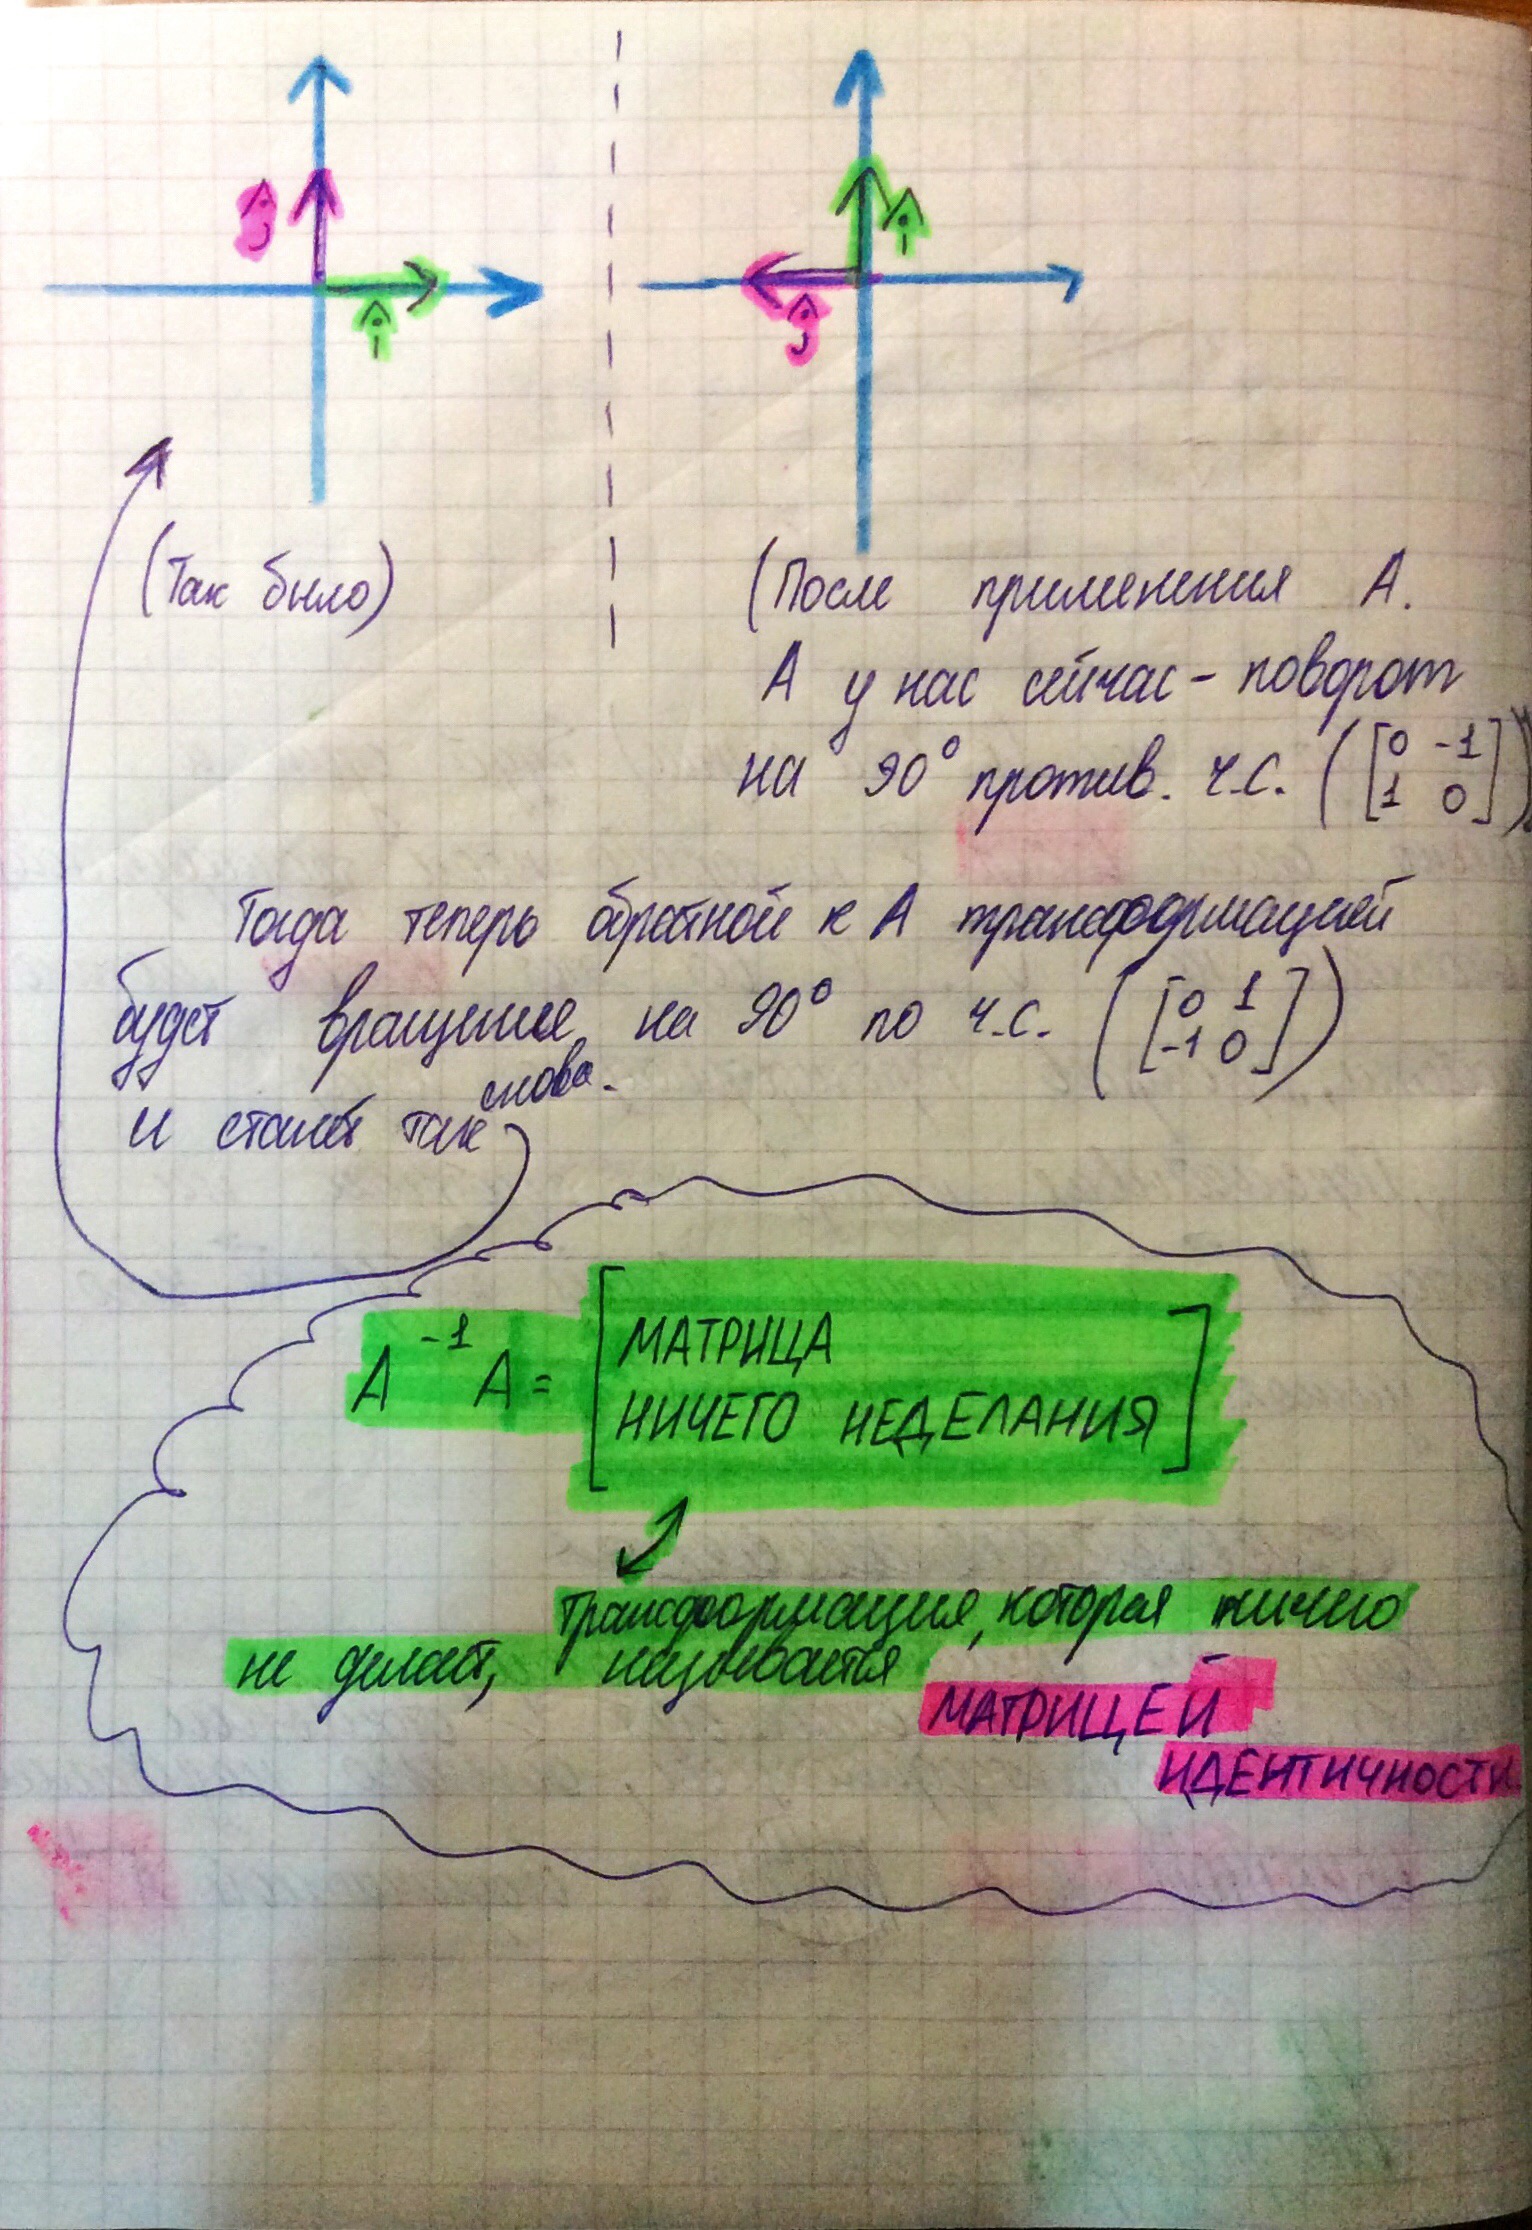 ĵ
î
î
ĵ
(Так было)
(После применения А.
А у нас сейчас - поворот
на 90° против. ч.с. ([0 -1
1 0])
Тогда теперь обратной к А трансформацией
будет вращение на 90° по ч.с. ([0 1
-1 0])
и станет так снова.
A⁻¹ A = [МАТРИЦА
НИЧЕГО НЕДЕЛАНИЯ]
Трансформация, которая ничего
не делает, называется
МАТРИЦЕЙ
ИДЕНТИЧНОСТИ